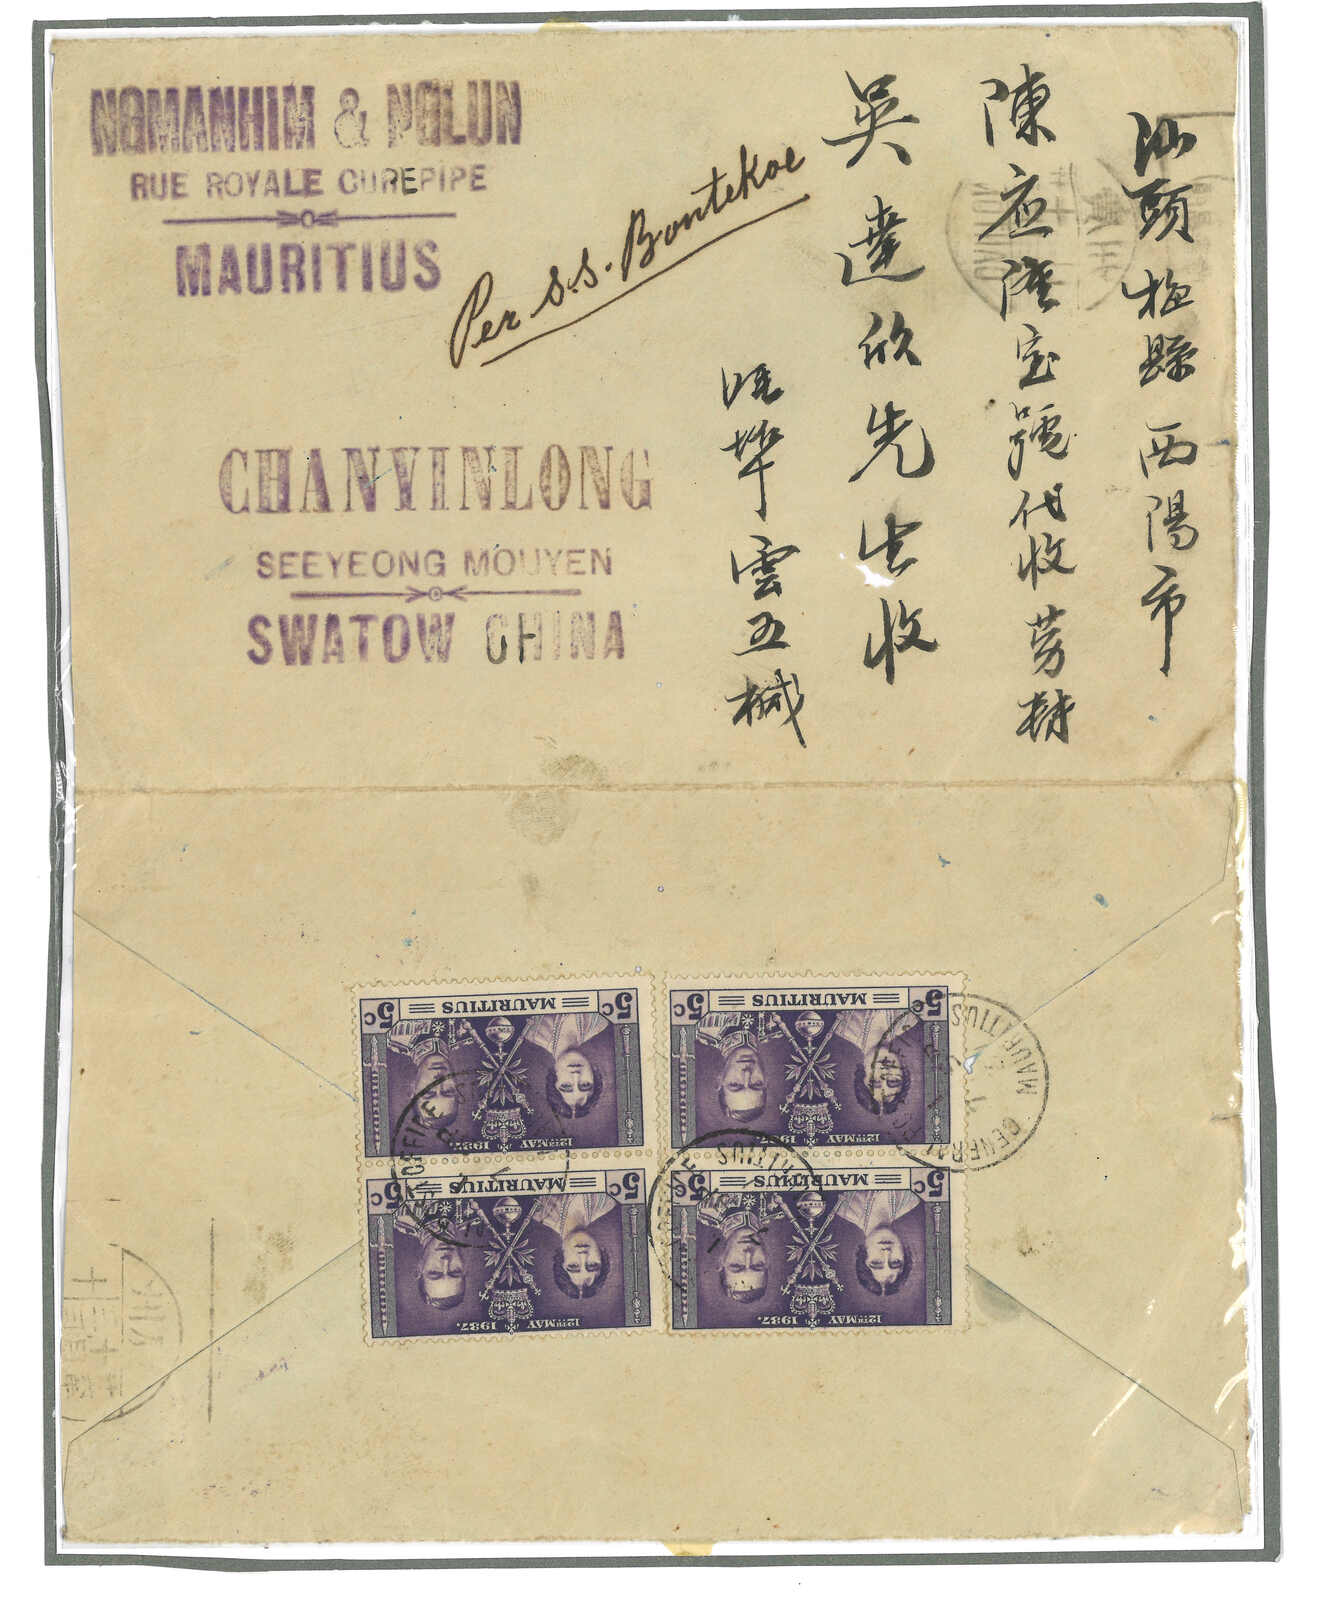 NGMANHIM & NGLUN
RUE ROYALE CUREPIPE
MAURITIUS
Per S.S. Bontekoe
CHANYINLONG
SEEYEONG MOUYEN
SWATOW CHINA
汕頭梅縣西陽市
陳應隆宝號代收劳
吳達欣先生收
埠雲五
5c MAURITIUS 5c
12TH MAY 1937.
5c MAURITIUS 5c
12TH MAY 1937.
5c MAURITIUS 5c
12TH MAY 1937.
5c MAURITIUS 5c
12TH MAY 1937.
GENERAL POST OFFICE
MAURITIUS